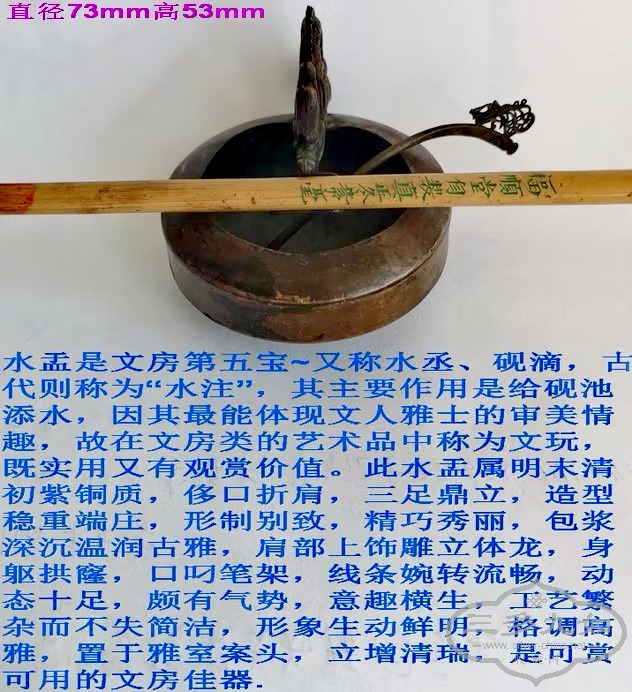 直径73mm高53mm
福順堂自製真
水盂是文房第五宝~又称水丞、砚滴，古
代则称为“水注”，其主要作用是给砚池
添水，因其最能体现文人雅士的审美情
趣，故在文房类的艺术品中称为文玩，
既实用又有观赏价值。此水盂属明末清
初紫铜质，侈口折肩，三足鼎立，造型
稳重端庄，形制别致，精巧秀丽，包浆
深沉温润古雅，肩部上饰雕立体龙，身
躯拱窿，口叼笔架，线条婉转流畅，动
态十足，颇有气势，意趣横生，工艺繁
杂而不失简洁，形象生动鲜明，格调高
雅，置于雅室案头，立增清瑞，是可赏
可用的文房佳器.